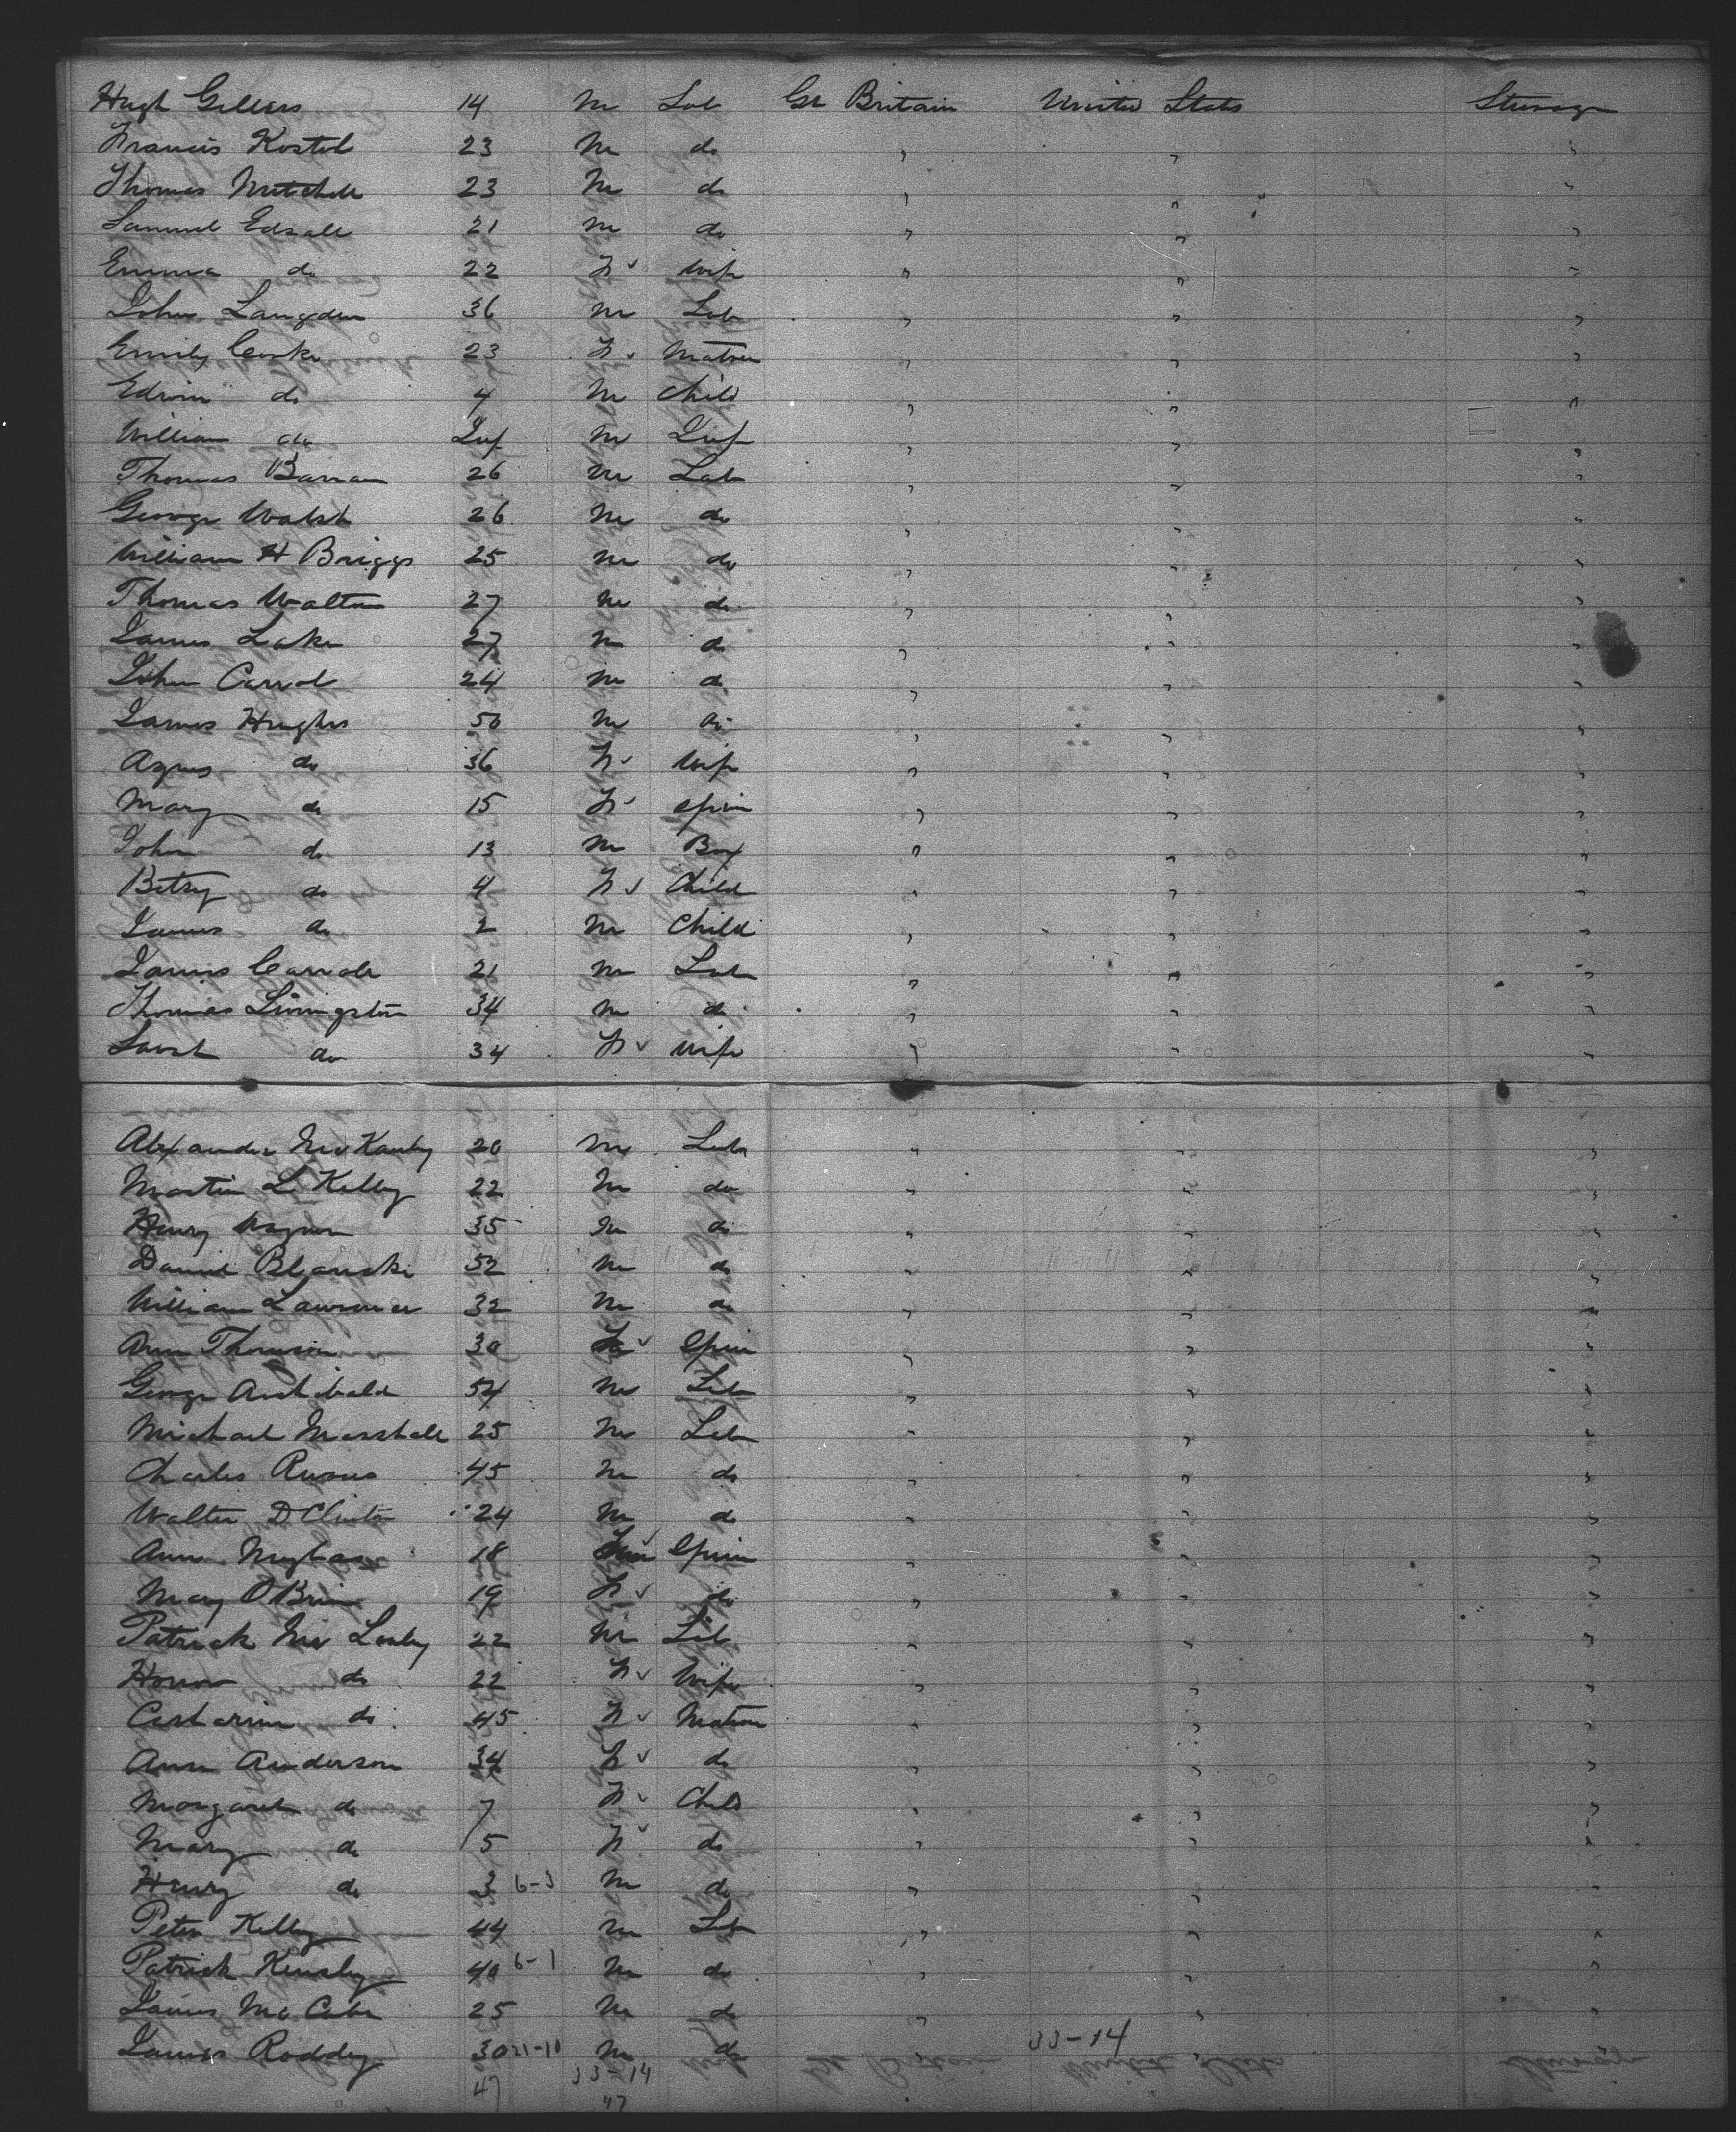 Hugh Gillers 14 M Lab Gt Britain United States Steerage
Francis Kostol 23 M do " " "
Thomas Mitchell 23 M do " " "
Samuel Edsall 21 M do " " "
Emma do 22 F ✓ Wife " " "
John Langdon 36 M Lab " " "
Emily Cooke 23 F ✓ Matron " " "
Edwin do 4 M Child " " "
William do Inf M Inf " " "
Thomas Barran 26 M Lab " " "
George Walsh 26 M do " " "
William H Briggs 25 M do " " "
Thomas Walton 27 M do " " "
James Lake 27 M do " " "
John Carrol 24 M do " " "
James Hughes 50 M do " " "
Agnes do 36 F ✓ Wife " " "
Mary do 15 F ✓ Spin " " "
John do 13 M Boy " " "
Betsy do 4 F ✓ Child " " "
James do 2 M Child " " "
James Carroll 21 M Lab " " "
Thomas Livingston 34 M do " " "
Sarah do 34 F ✓ Wife " " "
Alexander 20 M Lab " " "
Martin L Kelly 22 M do " " "
Henry Wagner 35 M do " " "
Daniel Blanski 52 M do " " "
William Lawrence 32 M do " " "
Ann Thomson 30 F ✓ Spin " " "
George Archibald 54 M Lab " " "
Michael Marshall 25 M Lab " " "
Charles 45 M do " " "
Walter D Clinton 24 M do " " "
Ann 18 ✓ Spin " " "
Mary O Brien 19 F ✓ do " " "
Patrick Mc 22 M Lab " " "
Honor do 22 F ✓ Wife " " "
Catharine do 45 F ✓ Matron " " "
Ann Anderson 34 F ✓ do " " "
Margaret do 7 F ✓ Child " " "
Mary do 5 F ✓ do " " "
Henry do 3 6-3 M do " " "
Peter Kelly 44 M Lab " " "
Patrick Kinsley 40 6-1 M do " " "
James Mc Cabe 25 M do " " "
James Roddy 30 21-10 M do " 33-14 "
47 33-14
47